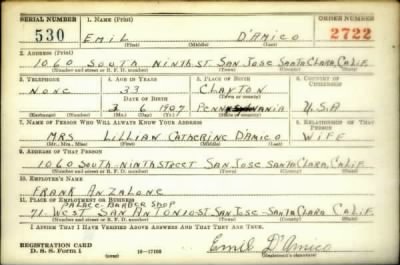 SERIAL NUMBER 1. NAME (Print) ORDER NUMBER
530 EMIL D'AMICO 2722
(First) (Middle) (Last)
2. ADDRESS (Print)
1060 SOUTH NINTH ST SAN JOSE SANTA CLARA, CALIF.
(Number and street or R. F. D. number) (Town) (County) (State)
3. TELEPHONE 4. AGE IN YEARS 5. PLACE OF BIRTH 6. COUNTRY OF CITIZENSHIP
NONE 33 CLAYTON
DATE OF BIRTH (Town or county)
6 1907 PENNSYLVANIA U.S.A
(Mo.) (Day) (Yr.) (State or country)
7. NAME OF PERSON WHO WILL ALWAYS KNOW YOUR ADDRESS 8. RELATIONSHIP OF THAT PERSON
MRS LILLIAN CATHERINE D'AMICO WIFE
(Mr., Mrs., Miss) (First) (Middle) (Last)
9. ADDRESS OF THAT PERSON
1060 SOUTH-NINTH STREET SAN JOSE SANTA CLARA, CALIF.
(Number and street or R. F. D. number) (Town) (County) (State)
10. EMPLOYER'S NAME
FRANK ANZALONE
11. PLACE OF EMPLOYMENT OR BUSINESS
PALACE-BARBER SHOP
71. WEST SAN ANTONIO-ST SAN JOSE-SANTA CLARA CALIF.
(Number and street or R. F. D. number) (Town) (County) (State)
I AFFIRM THAT I HAVE VERIFIED ABOVE ANSWERS AND THAT THEY ARE TRUE.
REGISTRATION CARD
D. S. S. Form 1 16—17105 Emil D'Amico